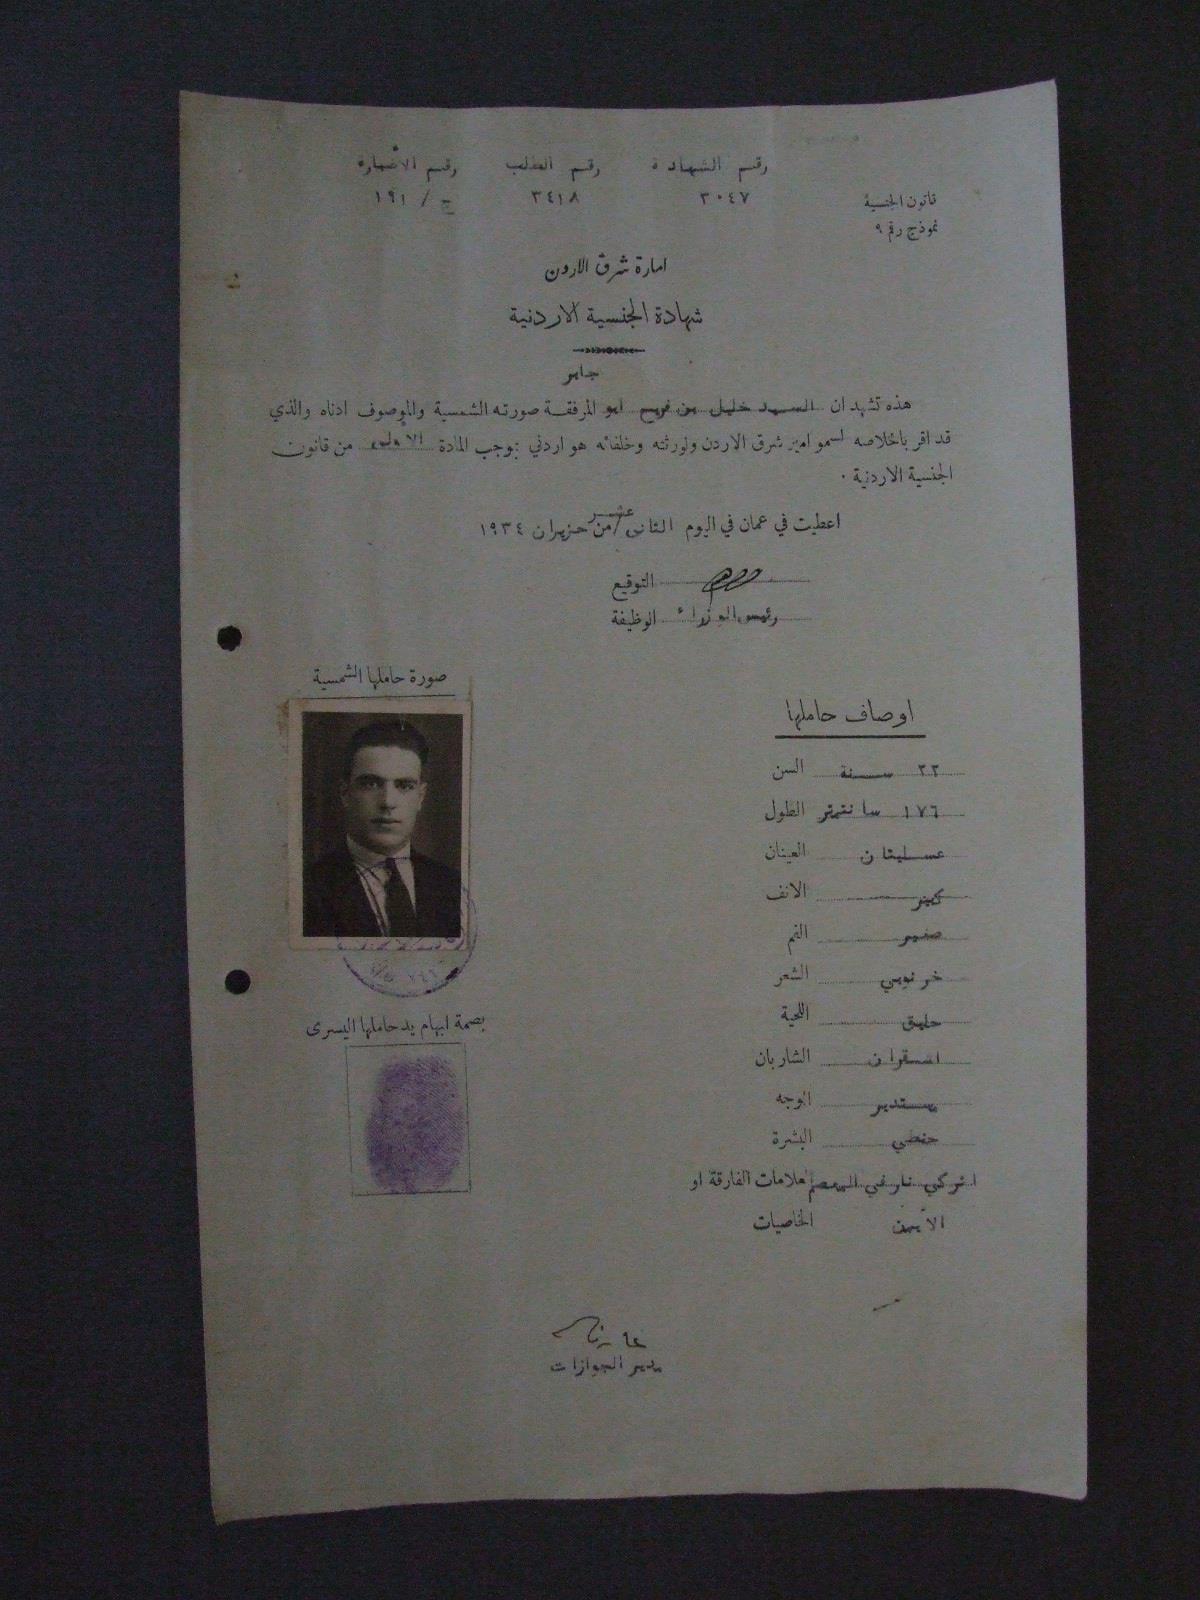 رقم الشهادة رقم الطلب رقم الاضبارة
٣٠٤٧ ٣٤١٨ ج / ١٩١
قانون الجنسية
نموذج رقم ٩
امارة شرق الاردن
شهادة الجنسية الاردنية
جابر
هذه تشهد ان السيد خليل بن فريح ابو المرفقة صورته الشمسية والموصوف ادناه والذي
قد اقر باخلاصه لسمو امير شرق الاردن ولورثته وخلفائه هو اردني بموجب المادة الاولى من قانون
الجنسية الاردنية .
اعطيت في عمان في اليوم الثاني عشر من حزيران ١٩٣٤
التوقيع
الوظيفة رئيس الوزراء
صورة حاملها الشمسية
اوصاف حاملها
السن ٢٢ سنة
الطول ١٧٦ سانتمتر
العينان عسليتان
الانف كبير
الفم صغير
الشعر خرنوبي
اللحية حليق
الشاربان اشقران
الوجه مستدير
البشرة حنطي
العلامات الفارقة او اثر كي نار في المعصم
الخاصيات الايمن
بصمة ابهام يد حاملها اليسرى
مدير الجوازات